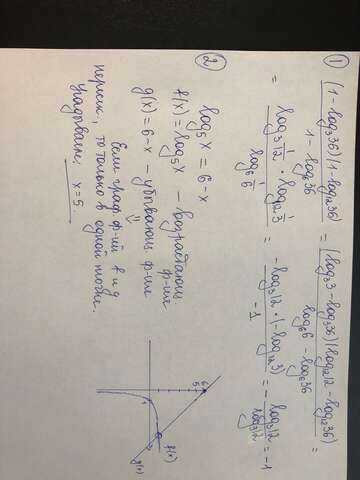 ① (1 - log₃36)(1 - log₁₂36) / (1 - log₆36) = (log₃3 - log₃36)(log₁₂12 - log₁₂36) / (log₆6 - log₆36) =
= log₃ 1/12 · log₁₂ 1/3 / log₆ 1/6 = -log₃12 · (-log₁₂3) / -1 = - log₃12 / log₃12 = -1
② log₅x = 6-x
f(x) = log₅x - возрастающ. ф-ия
g(x) = 6-x - убывающ. ф-ия
⇓
Если граф. ф-ий f и g
пересек., то только в одной точке.
Угадываем: x = 5.
6
5
1
f(x)
g(x)